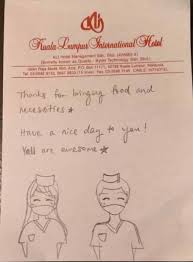 Kuala Lumpur International Hotel
KLI Hotel Management Sdn. Bhd.
Thanks for bringing food and
necessities
Have a nice day to you!
Yall are awesome